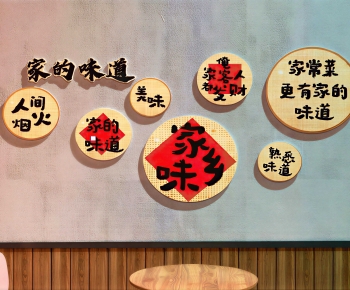 家的味道
人间
烟火
美味
家的
味道
家乡
味
家常菜
更有家的
味道
熟悉
味道